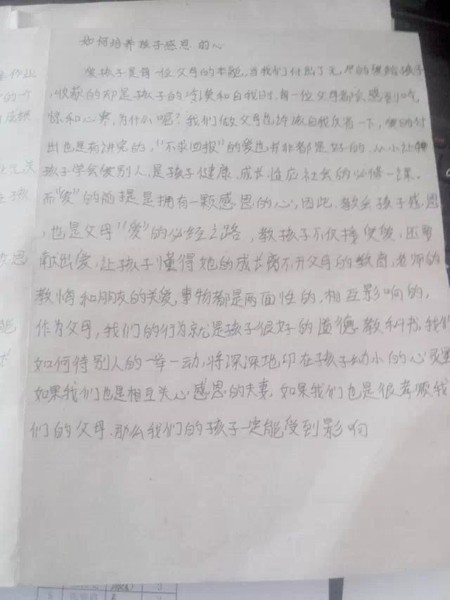 如何培养孩子感恩的心
爱孩子是每一位父母的本能，当我们付出了无尽的爱给孩子
，收获的却是孩子的冷漠和自我时，每一位父母都会感到惊
慌和心寒，为什么呢？我们做父母也许该自我反省一下，爱的付
出也是有讲究的，"不求回报"的爱也并非都是好的，从小让
孩子学会爱别人，是孩子健康，成长适应社会的必修一课。
而"爱"的前提是拥有一颗感恩的心，因此，教会孩子感恩
，也是父母"爱"的必经之路，教孩子不仅接受爱，还要
献出爱，让孩子懂得她的成长离不开父母的教育，老师的
教悔和朋友的关爱，事物都是两面性的，相互影响的，
作为父母，我们的行为就是孩子很好的道德教科书，我们
如何待别人的一举一动，将深深地印在孩子幼小的心灵里
如果我们也是相互关心感恩的夫妻，如果我们也是很孝顺我
们的父母，那么我们的孩子一定能受到影响